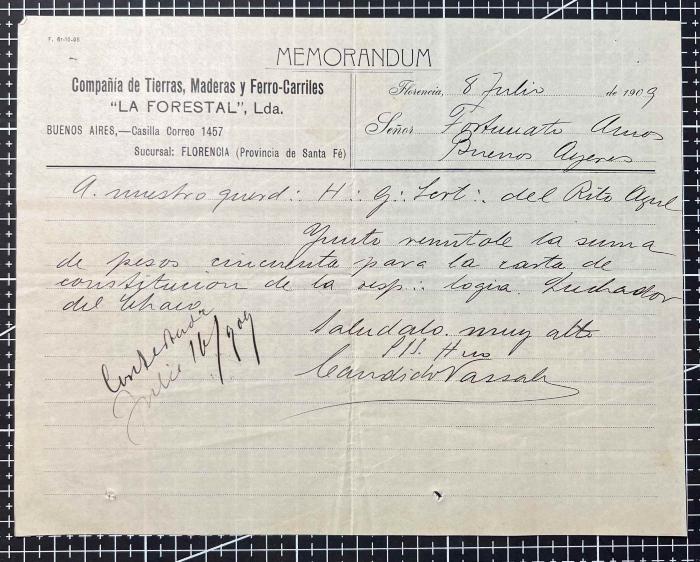 F. 61-10-08
MEMORANDUM
Compañía de Tierras, Maderas y Ferro-Carriles
"LA FORESTAL", Lda.
BUENOS AIRES,—Casilla Correo 1457
Sucursal: FLORENCIA (Provincia de Santa Fé)
Florencia, 8 Julio de 1909
Señor Fortunato Amos
Buenos Ayeres
A. nuestro querd∴ H∴ G∴ Sert∴ del Rito Azul
Junto remitole la suma
de pesos cincuenta para la carta de
constitucion de la resp∴ logia. Luchador
del Chaco
Saludalo muy atto
Hno
Candido Vassale
Contestada
Julio 16/909